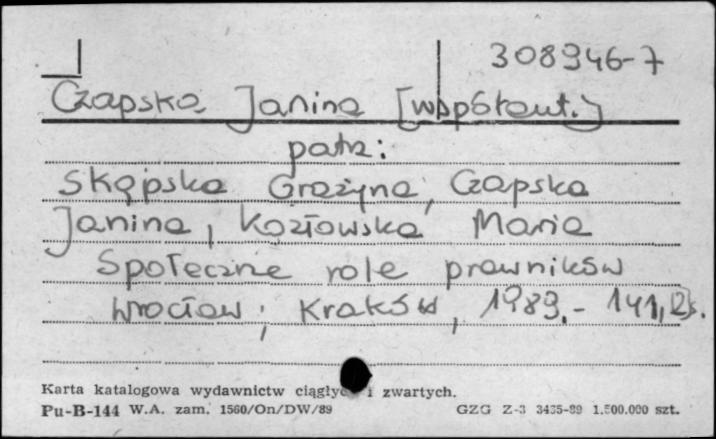 308946-7
Czapska Janina [współaut.]
patrz:
Skąpska Grażyna, Czapska
Janina, Kozłowska Maria
Społeczne role prawników
Wrocław; Kraków, 1989.- 141, [2]s.
Karta katalogowa wydawnictw ciągłych i zwartych.
Pu-B-144 W.A. zam. 1560/On/DW/89 GZG Z-3 3435-89 1.500.000 szt.